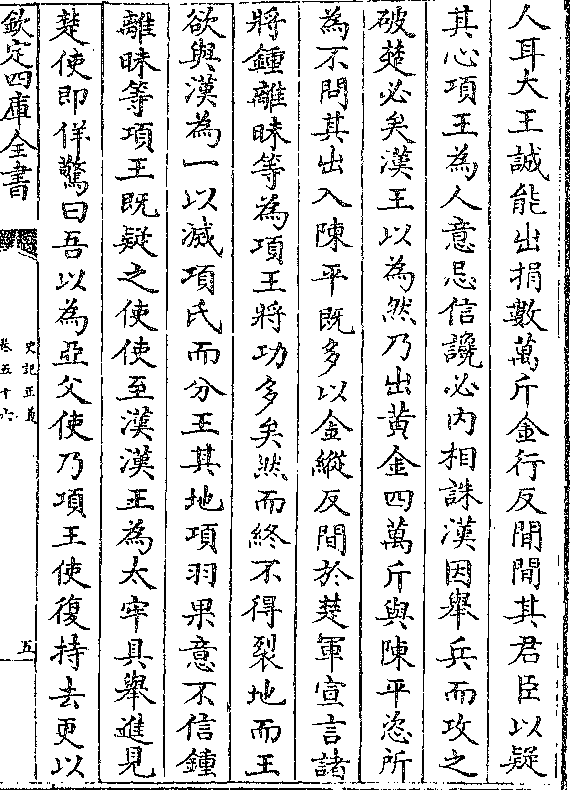 人耳大王誠能出捐數萬斤金行反間間其君臣以疑
其心項王為人意忌信讒必內相誅漢因舉兵而攻之
破楚必矣漢王以為然乃出黃金四萬斤與陳平恣所
為不問其出入陳平既多以金縱反間於楚軍宣言諸
將鍾離昧等為項王將功多矣然而終不得裂地而王
欲與漢為一以滅項氏而分王其地項羽果意不信鍾
離昧等項王既疑之使使至漢漢王為太牢具舉進見
楚使即佯驚曰吾以為亞父使乃項王使復持去更以
欽定四庫全書
史記正義
卷五十六
五